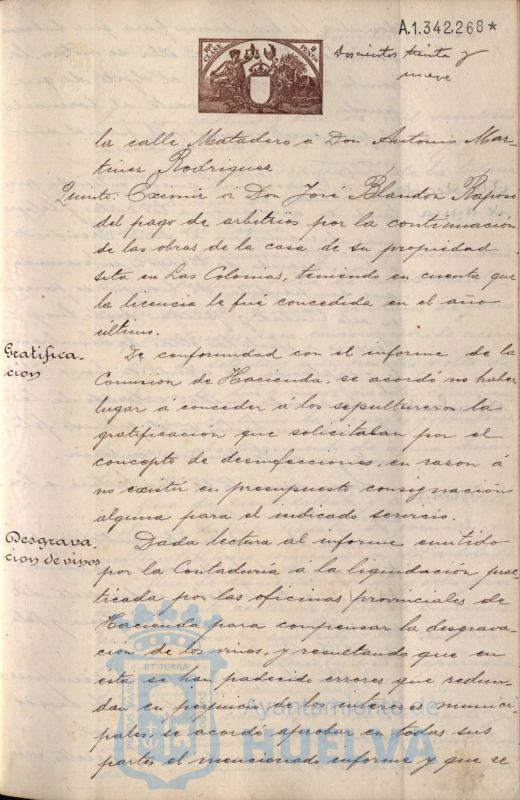 A.1.342.268*
Doscientos treinta y
nueve
la calle Matadero á Don Antonio Mar-
tinez Rodriguez
Quinto: Eximir á Don José Blandon Raposo
del pago de arbitrios por la continuación
de las obras de la casa de su propiedad
sita en Las Colonias, teniendo en cuenta que
la licencia le fué concedida en el año
último.
Gratifica-
cion
De conformidad con el informe de la
Comision de Hacienda, se acordó no haber
lugar á conceder á los sepultureros la
gratificación que solicitaban por el
concepto de desinfecciones, en razon á
no existir en presupuesto consignación
alguna para el indicado servicio.
Desgrava-
cion de vinos
Dada lectura al informe emitido
por la Contaduría á la liquidación prac-
ticada por las oficinas provinciales de
Hacienda para compensar la desgrava-
ción de los vinos, y resultando que en
esta se han padecido errores que redun-
dan en perjuicio de los intereses munici-
pales, se acordó aprobar en todas sus
partes el mencionado informe y que se
Ayuntamiento de
HUELVA